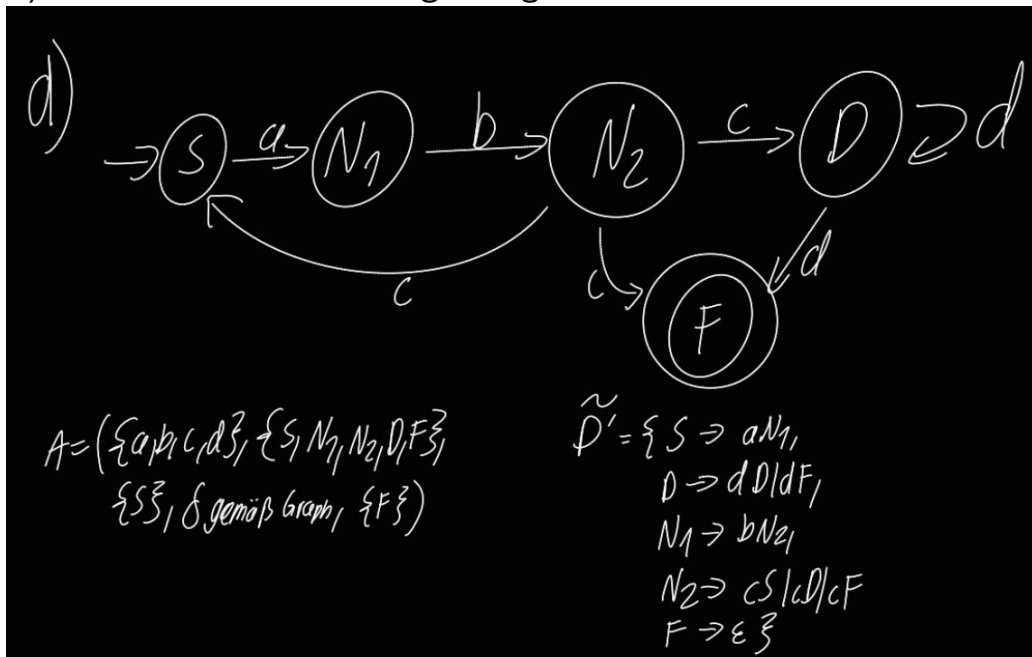 d)
S a N₁ b N₂ c D d
c c d
F
A=({a,b,c,d}, {S,N₁,N₂,D,F},
{S}, δ gemäß Graph, {F})
D̃'={S → aN₁,
D → dD|dF,
N₁ → bN₂,
N₂ → cS|cD|cF
F → ε}